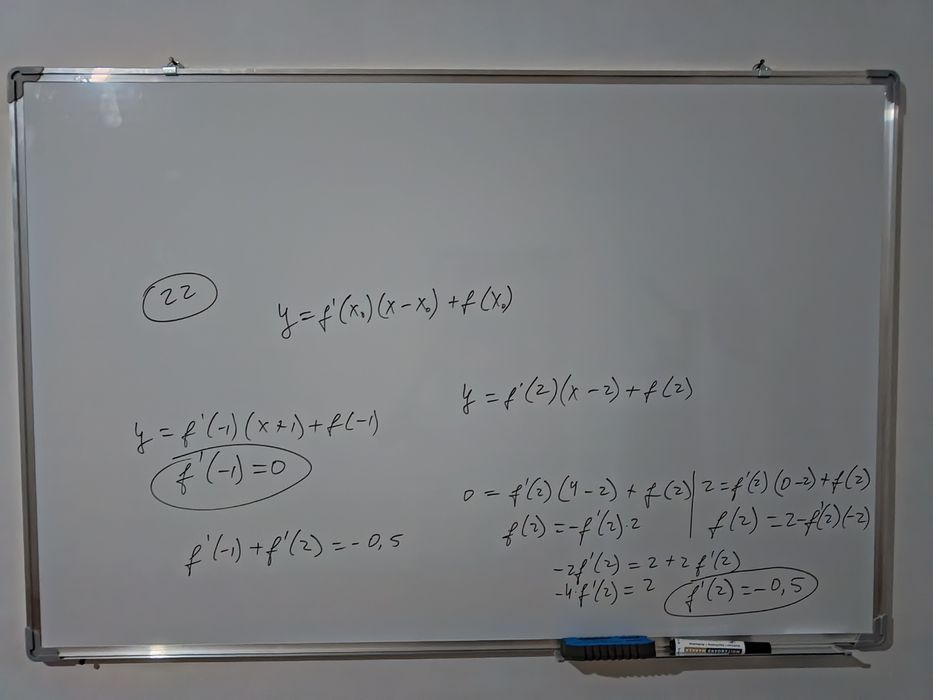 22
y = f'(x₀)(x - x₀) + f(x₀)
y = f'(2)(x - 2) + f(2)
y = f'(-1)(x+1) + f(-1)
f'(-1) = 0
0 = f'(2)(4 - 2) + f(2) | 2 = f'(2)(0-2) + f(2)
f(2) = -f'(2)·2 | f(2) = 2 - f'(2)(-2)
f'(-1) + f'(2) = -0,5
-2f'(2) = 2 + 2f'(2)
-4·f'(2) = 2
f'(2) = -0,5
WHITEBOARD MARKER